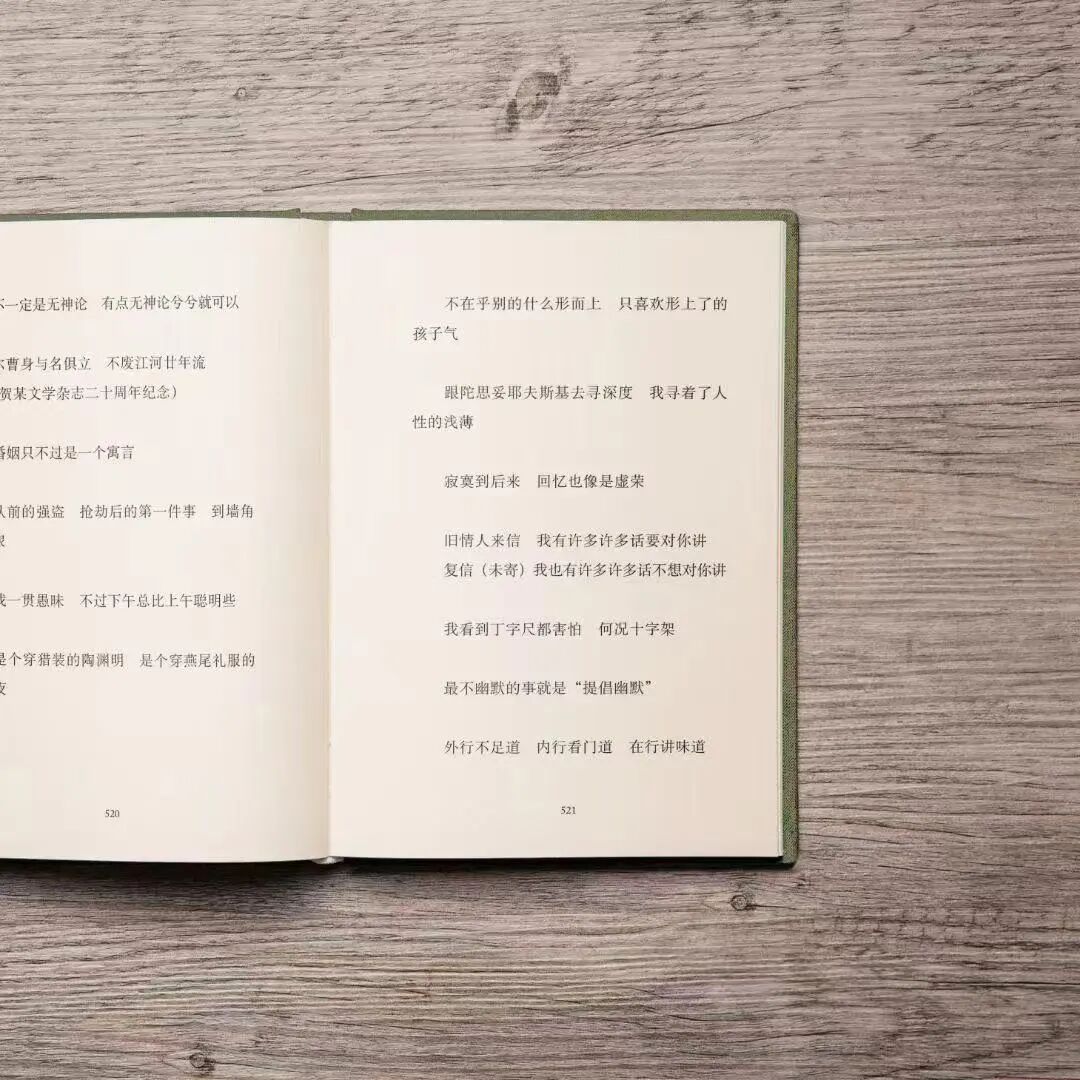 不一定是无神论　有点无神论兮兮就可以
尔曹身与名俱立　不废江河廿年流
贺某文学杂志二十周年纪念）
婚姻只不过是一个寓言
从前的强盗　抢劫后的第一件事　到墙角
我一贯愚昧　不过下午总比上午聪明些
是个穿猎装的陶渊明　是个穿燕尾礼服的
520
不在乎别的什么形而上　只喜欢形上了的
孩子气
跟陀思妥耶夫斯基去寻深度　我寻着了人
性的浅薄
寂寞到后来　回忆也像是虚荣
旧情人来信　我有许多许多话要对你讲
复信（未寄）我也有许多许多话不想对你讲
我看到丁字尺都害怕　何况十字架
最不幽默的事就是“提倡幽默”
外行不足道　内行看门道　在行讲味道
521